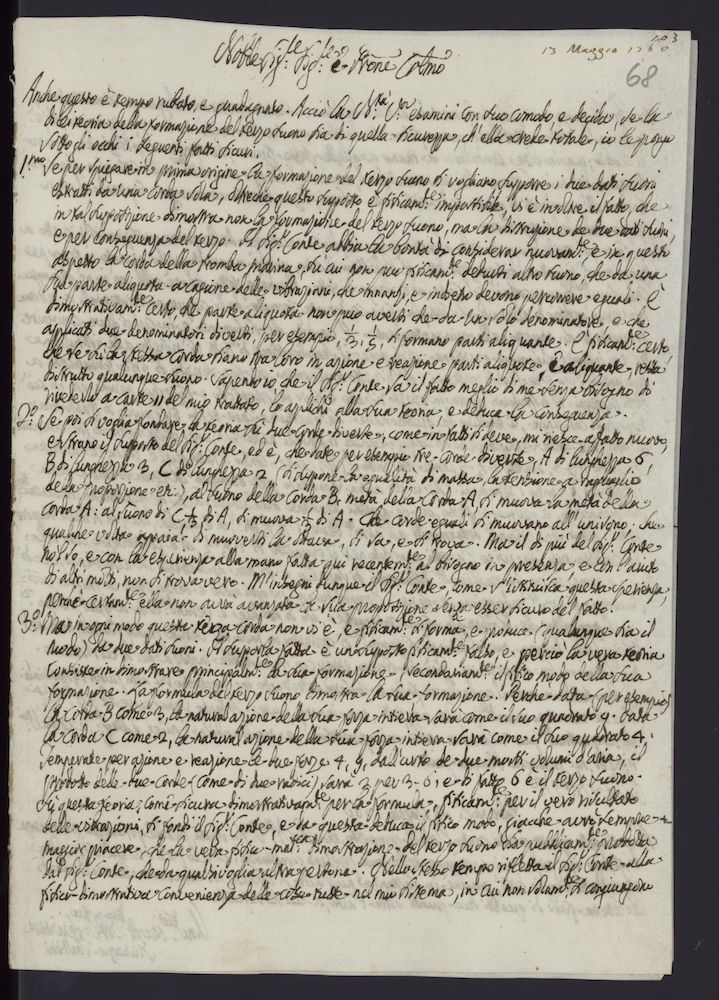 n.° 3
13 Maggio 1760
68
Nob:le Sig:r Sig:r e Prone Colmo
Anche questo è tempo rubato, e guadagnato. Acciò la V:ra Sig:ria esamini con suo comodo, e decida, se la
di lei teoria della formazione del terzo suono sia di quella sicurezza, ch'ella crede totale, io le pongo
sotto gli occhi i seguenti fatti sicuri.
1.mo Se per spiegare in prima origine la formazione del terzo suono si vogliano supporre i due dati suoni
estratti da una corda sola, oltreche questo supposto è fisicam:te impossibile, vi è inoltre il fatto, che
in tal supposizione dimostra non la formazione del terzo suono, ma la distruzione de due dati suoni,
e per conseguenza del terzo. Il Sig:r Conte abbia la bontà di considerar nuovam:te e in questo
aspetto la corda della tromba marina, su cui non può fisicam:te dedursi altro suono, che da una
sua parte aliquota a cagione delle vibrazioni, che innanzi, e indietro devono percorrere eguali. È
dimostrativam:te certo, che parte aliquota non può aversi che da un solo denominatore, e che
applicati due denominatori diversi, per esempio, 1/3, 1/5, si formano parti aliquante. È fisicam:te certo,
che se di la stessa corda siano tra loro in azione e reazione parti aliquote, e aliquante, resta
distrutto qualunque suono. Sapendo io che il Sig:r Conte sa il fatto meglio di me, senza bisogno di
rivederlo a carte 11 del mio trattato, lo applichi alla sua teoria, e deduca la conseguenza.
2.° Se poi si voglia fondare la teoria su due corde diverse, come in fatti si deve, mi riesce affatto nuovo,
e strano il supposto del Sig:r Conte, ed è, che date per esempio tre corde diverse, A di lunghezza 6,
B di lunghezza 3, C di lunghezza 2 (si suppone la egualità di massa, la tensione a ragguaglio
della proporzione etc:), al suono della corda B, metà della corda A, si muova la metà della
corda A: al suono di C 1/3 di A, si muova 1/3 di A. Che corde eguali si muovano all'unisono, che
qualche volta appaia di muoversi la ottava, si sa, e si trova. Ma il di più del Sig:r Conte
no'l so, e con la esperienza alla mano fatta qui recentem:te al bisogno in presenza e con l'aiuto
di altri molti, non si trova vero. M'insegni dunque il Sig:r Conte, come s'istituisca questa esperienza,
perche certam:te ella non avrà avanzata la sua proposizione senza esser sicuro del fatto.
3.° Ma in ogni modo questa terza corda non vi è, e fisicam:te si forma, e produce (qualunque sia il
modo) da due dati suoni. Il supporla fatta è un supposto fisicam:te falso, e perciò la vera teoria
consiste in dimostrare principalm:te la sua formazione, secondariam:te il fisico modo della sua
formazione. La formula del terzo suono dimostra la sua formazione. Perche data (per esempio)
la corda B come 3, la natural azione della sua forza intiera sarà come il suo quadrato 9. Data
la corda C come 2, la natural azione della sua forza intiera sarà come il suo quadrato 4.
Temperate per azione e reazione le due forze 4, 9, dall'urto de due mossi volumi d'aria, il
prodotto delle due corde (come di due radici) sarà 2 per 3=6; e di fatto 6 è il terzo suono.
Su questa teoria, come sicura dimostrativam:te per la formula, fisicam:te per il vero risultato
delle vibrazioni, si fondi il Sig:r Conte, e da questa deduca il fisico modo, giacche avrò sempre
maggior piacere, che la vera fisico-mat:ica dimostrazione del terzo suono sia pubblicam:te prodotta
dal Sig:r Conte, che da qualsivoglia altra persona. Nello stesso tempo rifletta il Sig:r Conte alla
fisico-dimostrativa convenienza delle cose tutte nel mio sistema, in cui non solam:te si congiungono